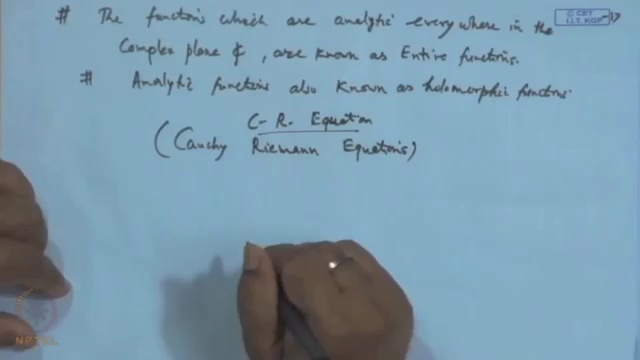 © CET
I.I.T. KGP
# The functions which are analytic every where in the
Complex plane ₵, are known as Entire functions.
# Analytic functions also known as holomorphic functions.
C-R. Equation
(Cauchy Riemann Equations)
NPTEL